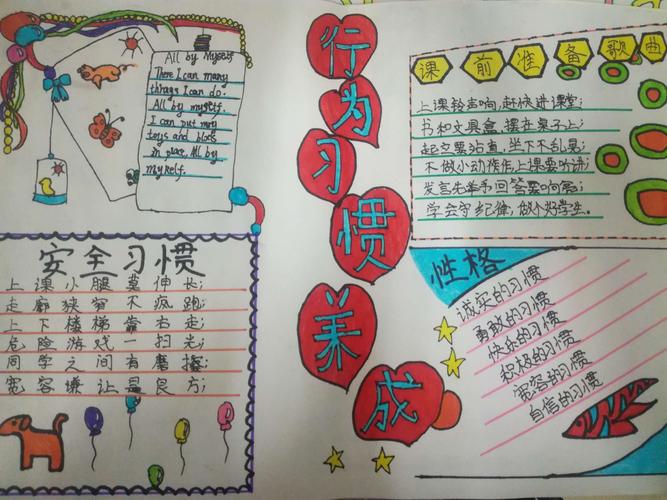 All by Myself
There I can many
things I can do.
All by myself.
I can put my
toys and blocks
in place. All by
myself.
行为习惯养成
课前准备歌曲
上课铃声响,赶快进课堂;
书和文具盒,摆在桌子上;
起立要站直,坐下不乱晃;
不做小动作,上课要听讲;
发言先举手,回答要响亮;
学会守纪律,做个好学生.
安全习惯
上课小腿莫伸长;
走廊狭窄不疯跑;
上下楼梯靠右走;
危险游戏一扫光;
同学之间有磨擦;
宽容谦让是良方;
性格
诚实的习惯
勇敢的习惯
快乐的习惯
积极的习惯
宽容的习惯
自信的习惯